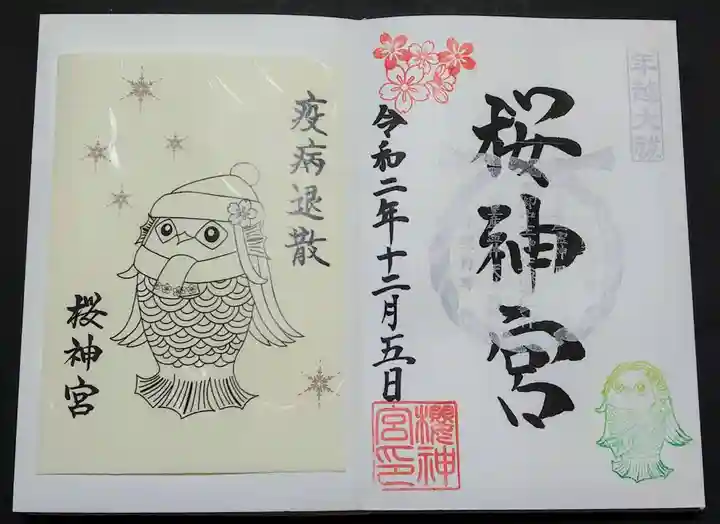 年越大祓
桜神宮
令和二年十二月五日
櫻神
宮印
疫病退散
桜神宮